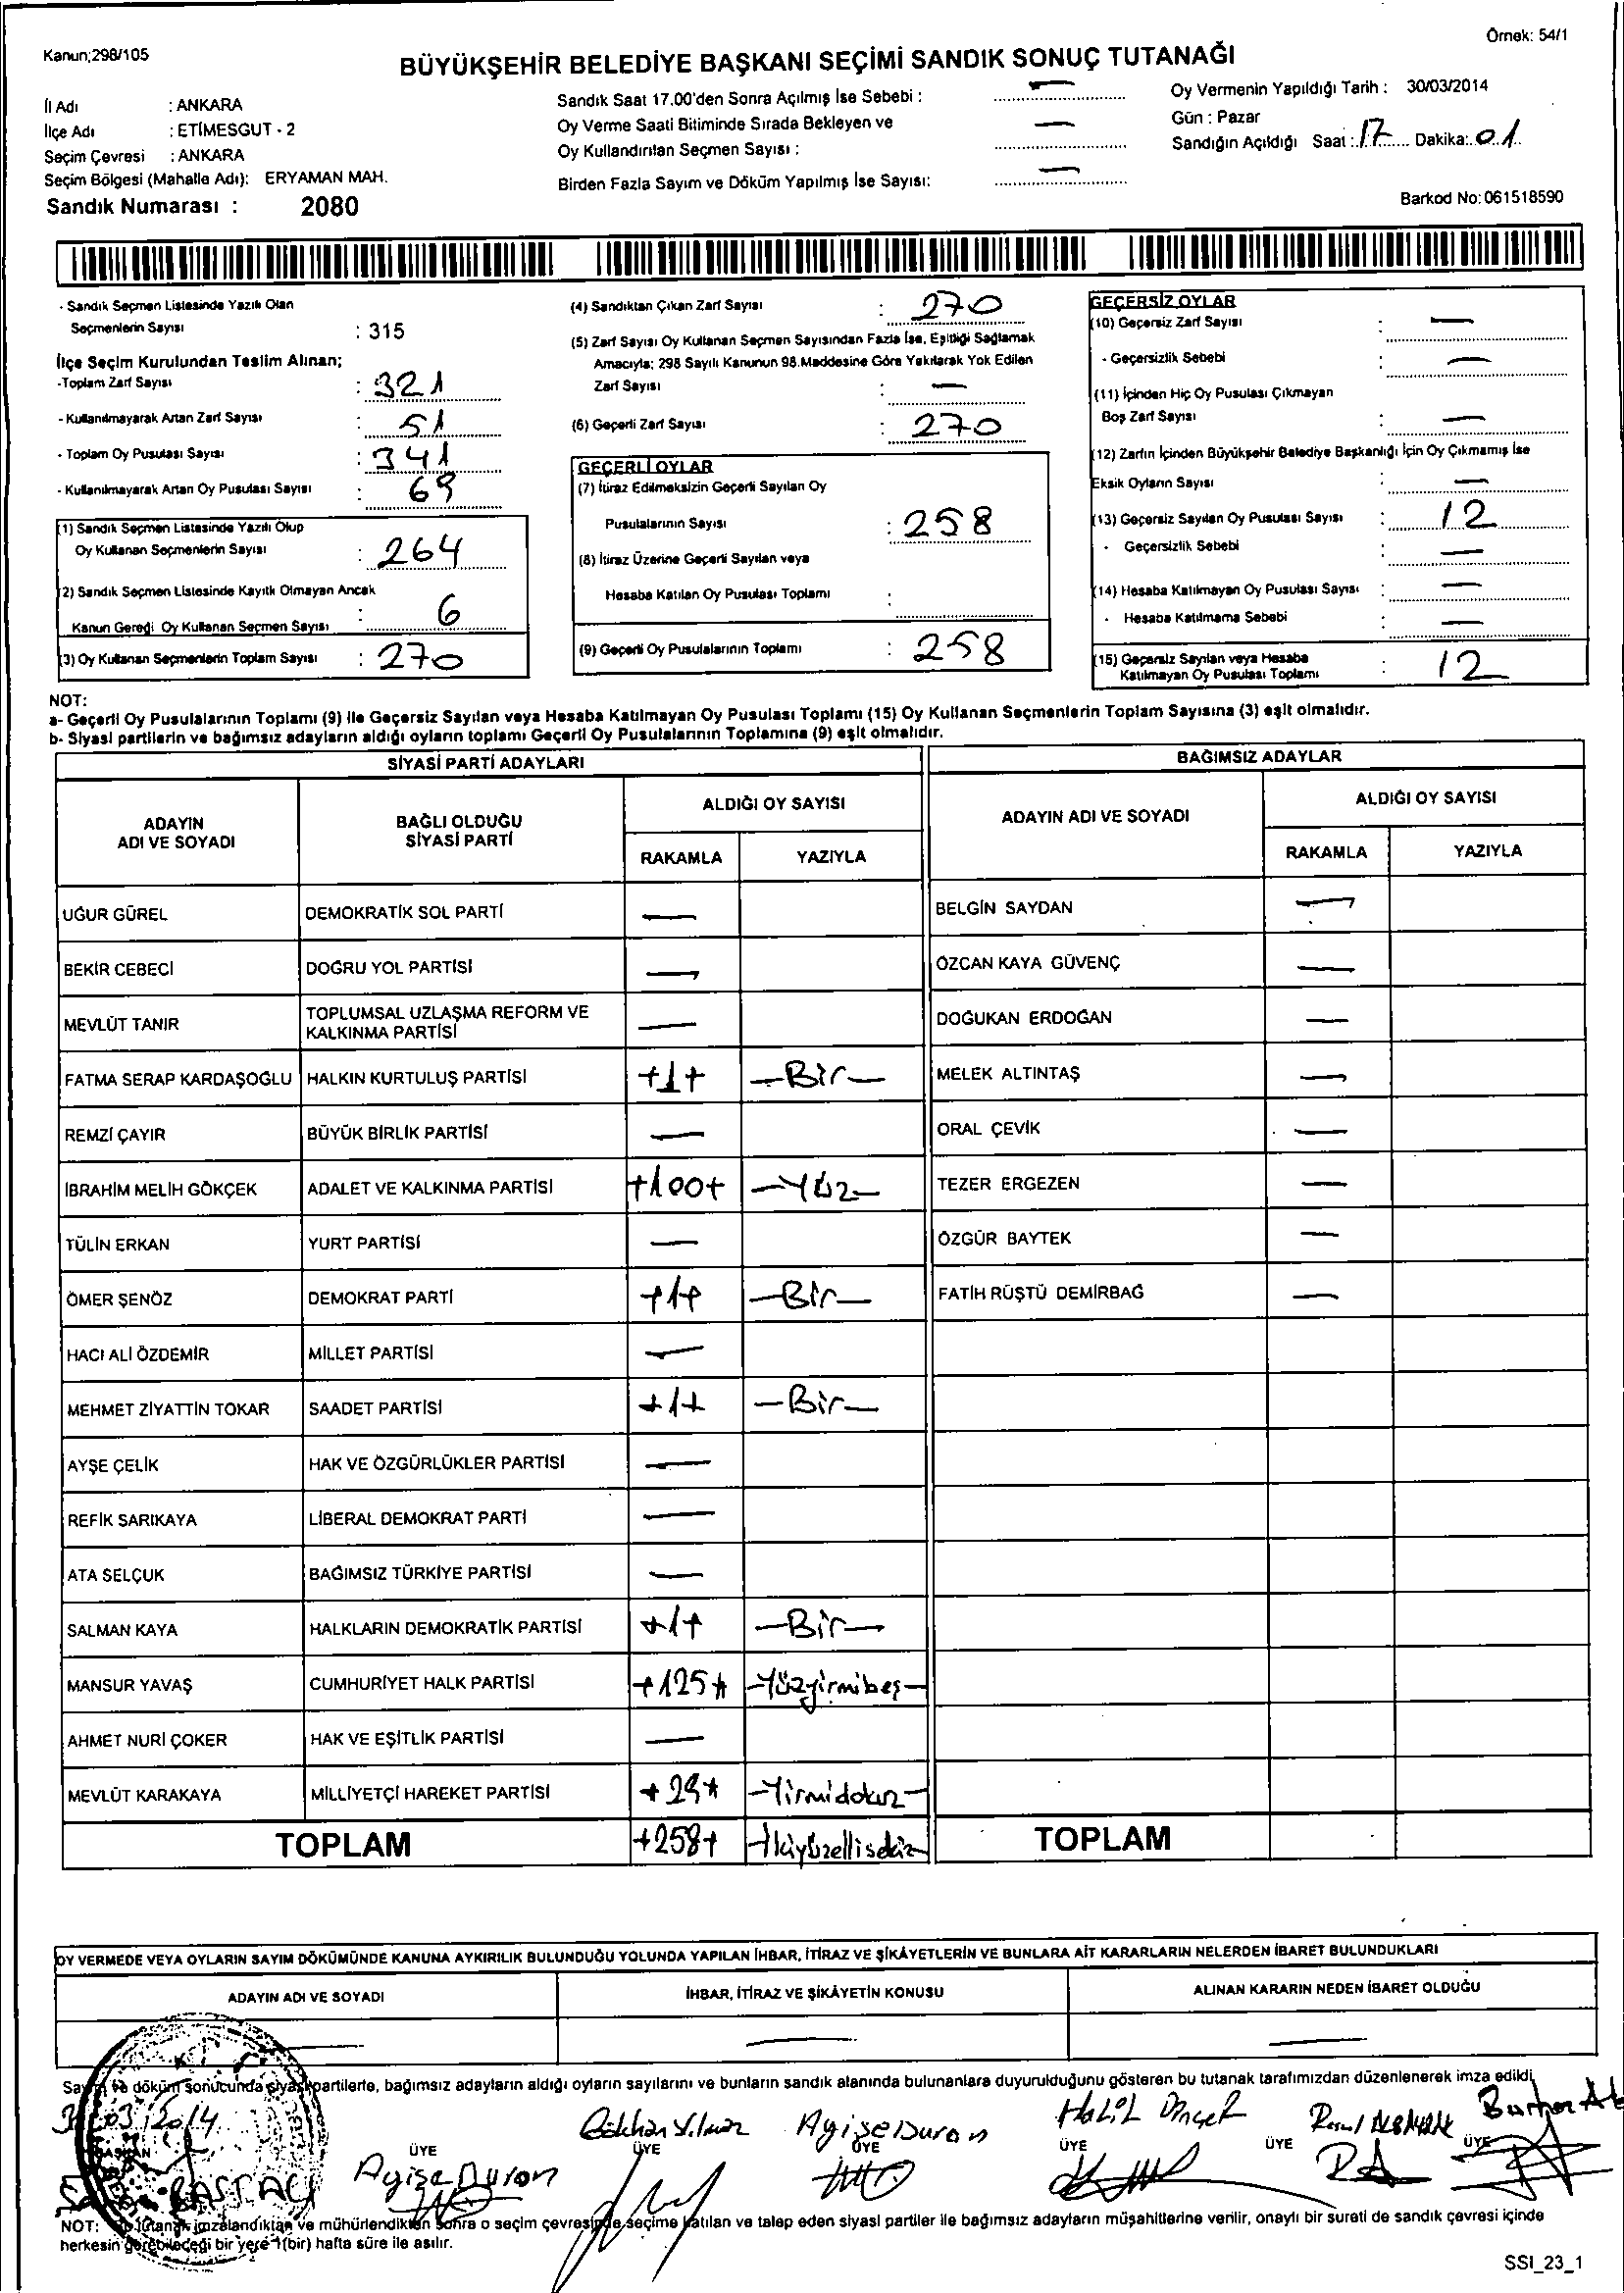 Kanun;298/105
Örnek: 54/1
BÜYÜKŞEHİR BELEDİYE BAŞKANI SEÇİMİ SANDIK SONUÇ TUTANAĞI
İl Adı : ANKARA
İlçe Adı : ETİMESGUT - 2
Seçim Çevresi : ANKARA
Seçim Bölgesi (Mahalle Adı): ERYAMAN MAH.
Sandık Numarası : 2080
Sandık Saat 17.00'den Sonra Açılmış İse Sebebi : —
Oy Verme Saati Bitiminde Sırada Bekleyen ve
Oy Kullandırılan Seçmen Sayısı : —
Birden Fazla Sayım ve Döküm Yapılmış İse Sayısı: —
Oy Vermenin Yapıldığı Tarih : 30/03/2014
Gün : Pazar
Sandığın Açıldığı Saat : 17 Dakika: 01
Barkod No: 061518590
- Sandık Seçmen Listesinde Yazılı Olan
Seçmenlerin Sayısı : 315
İlçe Seçim Kurulundan Teslim Alınan;
-Toplam Zarf Sayısı : 321
- Kullanılmayarak Artan Zarf Sayısı : 51
- Toplam Oy Pusulası Sayısı : 341
- Kullanılmayarak Artan Oy Pusulası Sayısı : 69
(1) Sandık Seçmen Listesinde Yazılı Olup
Oy Kullanan Seçmenlerin Sayısı : 264
2) Sandık Seçmen Listesinde Kayıtlı Olmayan Ancak
Kanun Gereği Oy Kullanan Seçmen Sayısı : 6
(3) Oy Kullanan Seçmenlerin Toplam Sayısı : 270
(4) Sandıktan Çıkan Zarf Sayısı : 270
(5) Zarf Sayısı Oy Kullanan Seçmen Sayısından Fazla İse, Eşitliği Sağlamak
Amacıyla; 298 Sayılı Kanunun 98.Maddesine Göre Yakılarak Yok Edilen
Zarf Sayısı : —
(6) Geçerli Zarf Sayısı : 270
GEÇERLİ OYLAR
(7) İtiraz Edilmeksizin Geçerli Sayılan Oy
Pusulalarının Sayısı : 258
(8) İtiraz Üzerine Geçerli Sayılan veya
Hesaba Katılan Oy Pusulası Toplamı :
(9) Geçerli Oy Pusulalarının Toplamı : 258
GEÇERSİZ OYLAR
(10) Geçersiz Zarf Sayısı : —
- Geçersizlik Sebebi : —
(11) İçinden Hiç Oy Pusulası Çıkmayan
Boş Zarf Sayısı : —
(12) Zarfın İçinden Büyükşehir Belediye Başkanlığı İçin Oy Çıkmamış İse
Eksik Oyların Sayısı : —
(13) Geçersiz Sayılan Oy Pusulası Sayısı : 12
- Geçersizlik Sebebi : —
(14) Hesaba Katılmayan Oy Pusulası Sayısı : —
- Hesaba Katılmama Sebebi : —
(15) Geçersiz Sayılan veya Hesaba
Katılmayan Oy Pusulası Toplamı : 12
NOT:
a- Geçerli Oy Pusulalarının Toplamı (9) ile Geçersiz Sayılan veya Hesaba Katılmayan Oy Pusulası Toplamı (15) Oy Kullanan Seçmenlerin Toplam Sayısına (3) eşit olmalıdır.
b- Siyasi partilerin ve bağımsız adayların aldığı oyların toplamı Geçerli Oy Pusulalarının Toplamına (9) eşit olmalıdır.
SİYASİ PARTİ ADAYLARI
ADAYIN ADI VE SOYADI
BAĞLI OLDUĞU SİYASİ PARTİ
ALDIĞI OY SAYISI
RAKAMLA YAZIYLA
UĞUR GÜREL DEMOKRATİK SOL PARTİ —
BEKİR CEBECİ DOĞRU YOL PARTİSİ —
MEVLÜT TANIR TOPLUMSAL UZLAŞMA REFORM VE KALKINMA PARTİSİ —
FATMA SERAP KARDAŞOĞLU HALKIN KURTULUŞ PARTİSİ +1+ —Bir—
REMZİ ÇAYIR BÜYÜK BİRLİK PARTİSİ —
İBRAHİM MELİH GÖKÇEK ADALET VE KALKINMA PARTİSİ +100+ —Yüz—
TÜLİN ERKAN YURT PARTİSİ —
ÖMER ŞENÖZ DEMOKRAT PARTİ +1+ —Bir—
HACI ALİ ÖZDEMİR MİLLET PARTİSİ —
MEHMET ZİYATTİN TOKAR SAADET PARTİSİ +1+ —Bir—
AYŞE ÇELİK HAK VE ÖZGÜRLÜKLER PARTİSİ —
REFİK SARIKAYA LİBERAL DEMOKRAT PARTİ —
ATA SELÇUK BAĞIMSIZ TÜRKİYE PARTİSİ —
SALMAN KAYA HALKLARIN DEMOKRATİK PARTİSİ +1+ —Bir—
MANSUR YAVAŞ CUMHURİYET HALK PARTİSİ +125+ —Yüzyirmibeş—
AHMET NURİ ÇOKER HAK VE EŞİTLİK PARTİSİ —
MEVLÜT KARAKAYA MİLLİYETÇİ HAREKET PARTİSİ +29+ —Yirmidokuz—
TOPLAM +258+ —İkiyüzellisekiz—
BAĞIMSIZ ADAYLAR
ADAYIN ADI VE SOYADI
ALDIĞI OY SAYISI
RAKAMLA YAZIYLA
BELGİN SAYDAN —
ÖZCAN KAYA GÜVENÇ —
DOĞUKAN ERDOĞAN —
MELEK ALTINTAŞ —
ORAL ÇEVİK —
TEZER ERGEZEN —
ÖZGÜR BAYTEK —
FATİH RÜŞTÜ DEMİRBAĞ —
TOPLAM
OY VERMEDE VEYA OYLARIN SAYIM DÖKÜMÜNDE KANUNA AYKIRILIK BULUNDUĞU YOLUNDA YAPILAN İHBAR, İTİRAZ VE ŞİKÂYETLERİN VE BUNLARA AİT KARARLARIN NELERDEN İBARET BULUNDUKLARI
ADAYIN ADI VE SOYADI İHBAR, İTİRAZ VE ŞİKÂYETİN KONUSU ALINAN KARARIN NEDEN İBARET OLDUĞU
— — —
Sayım ve döküm sonucunda siyasi partilerle, bağımsız adayların aldığı oyların sayılarını ve bunların sandık alanında bulunanlara duyurulduğunu gösteren bu tutanak tarafımızdan düzenlenerek imza edildi.
Gökhan Yılmaz Ayişe Duran Halil
BAŞKAN ÜYE ÜYE ÜYE ÜYE ÜYE ÜYE
Ayişe Duran
NOT: Bu tutanak imzalandıktan ve mühürlendikten sonra o seçim çevresinde seçime katılan ve talep eden siyasi partiler ile bağımsız adayların müşahitlerine verilir, onaylı bir sureti de sandık çevresi içinde
herkesin görebileceği bir yere 1(bir) hafta süre ile asılır.
SSI_23_1